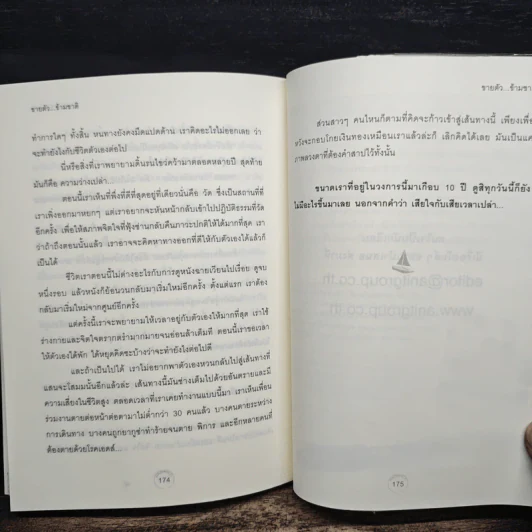 ขายตัว...ข้ามชาติ
ทำการใดๆ ทั้งสิ้น หนทางยังคงมืดแปดด้าน เราคิดอะไรไม่ออกเลย ว่า
จะทำยังไงกับชีวิตตัวเองต่อไป
นี่หรือสิ่งที่เราพยายามดิ้นรนไขว่คว้ามาตลอดหลายปี สุดท้าย
มันก็คือ ความว่างเปล่า...
ตอนนี้เราเห็นที่พึ่งที่ดีที่สุดอยู่ที่เดียวนั่นคือ วัด ซึ่งเป็นสถานที่ที่
เราเพิ่งออกมาหยกๆ แต่เราอยากจะหันหน้ากลับเข้าไปปฏิบัติธรรมที่วัด
อีกครั้ง เพื่อให้สภาพจิตใจที่ฟุ้งซ่านกลับคืนภาวะปกติให้ได้มากที่สุด เรา
ว่าถ้าถึงตอนนั้นแล้ว เราอาจจะคิดหาทางออกที่ดีให้กับตัวเองได้แล้วก็
เป็นได้
ชีวิตเราตอนนี้ไม่ต่างอะไรกับการดูหนังฉายเวียนไปเรื่อย ดูจบ
หนึ่งรอบ แล้วหนังก็ย้อนวนกลับมาเริ่มใหม่อีกครั้ง ตั้งแต่แรก เราต้อง
กลับมาเริ่มใหม่จากศูนย์อีกครั้ง
แต่ครั้งนี้เราจะพยายามให้เวลาอยู่กับตัวเองให้มากที่สุด เราใช้
ร่างกายและจิตใจตรากตรำมามากมายจนอ่อนล้าเต็มที ตอนนี้เราขอเวลา
ให้ตัวเองได้พัก ได้หยุดคิดซะบ้างว่าจะทำยังไงต่อไปดี
และถ้าเป็นไปได้ เราไม่อยากพาตัวเองหวนกลับไปสู่เส้นทางที่
แสนจะโสมมนั้นอีกแล้วล่ะ เส้นทางนี้มันช่างเต็มไปด้วยอันตรายและมี
ความเสี่ยงในชีวิตสูง ตลอดเวลาที่เราเคยทำงานแบบนี้มา เราเห็นเพื่อน
ร่วมงานตายต่อหน้าต่อตามาไม่ต่ำกว่า 30 คนแล้ว บางคนตายระหว่าง
การเดินทาง บางคนถูกยากูซ่าทำร้ายจนตาย พิการ และอีกหลายคนที่
ต้องตายด้วยโรคเอดส์...
174
ขายตัว...ข้ามชา
ส่วนสาวๆ คนไหนก็ตามที่คิดจะก้าวเข้าสู่เส้นทางนี้ เพียงเพื่อ
หวังจะกอบโกยเงินทองเหมือนเราแล้วล่ะก็ เลิกคิดได้เลย มันเป็นแค่
ภาพลวงตาที่ต้องคำสาปไว้ทั้งนั้น
ขนาดเราที่อยู่ในวงการนี้มาเกือบ 10 ปี ดูสิทุกวันนี้ก็ยัง
ไม่มีอะไรขึ้นมาเลย นอกจากคำว่า เสียใจกับเสียเวลาเปล่า...
175